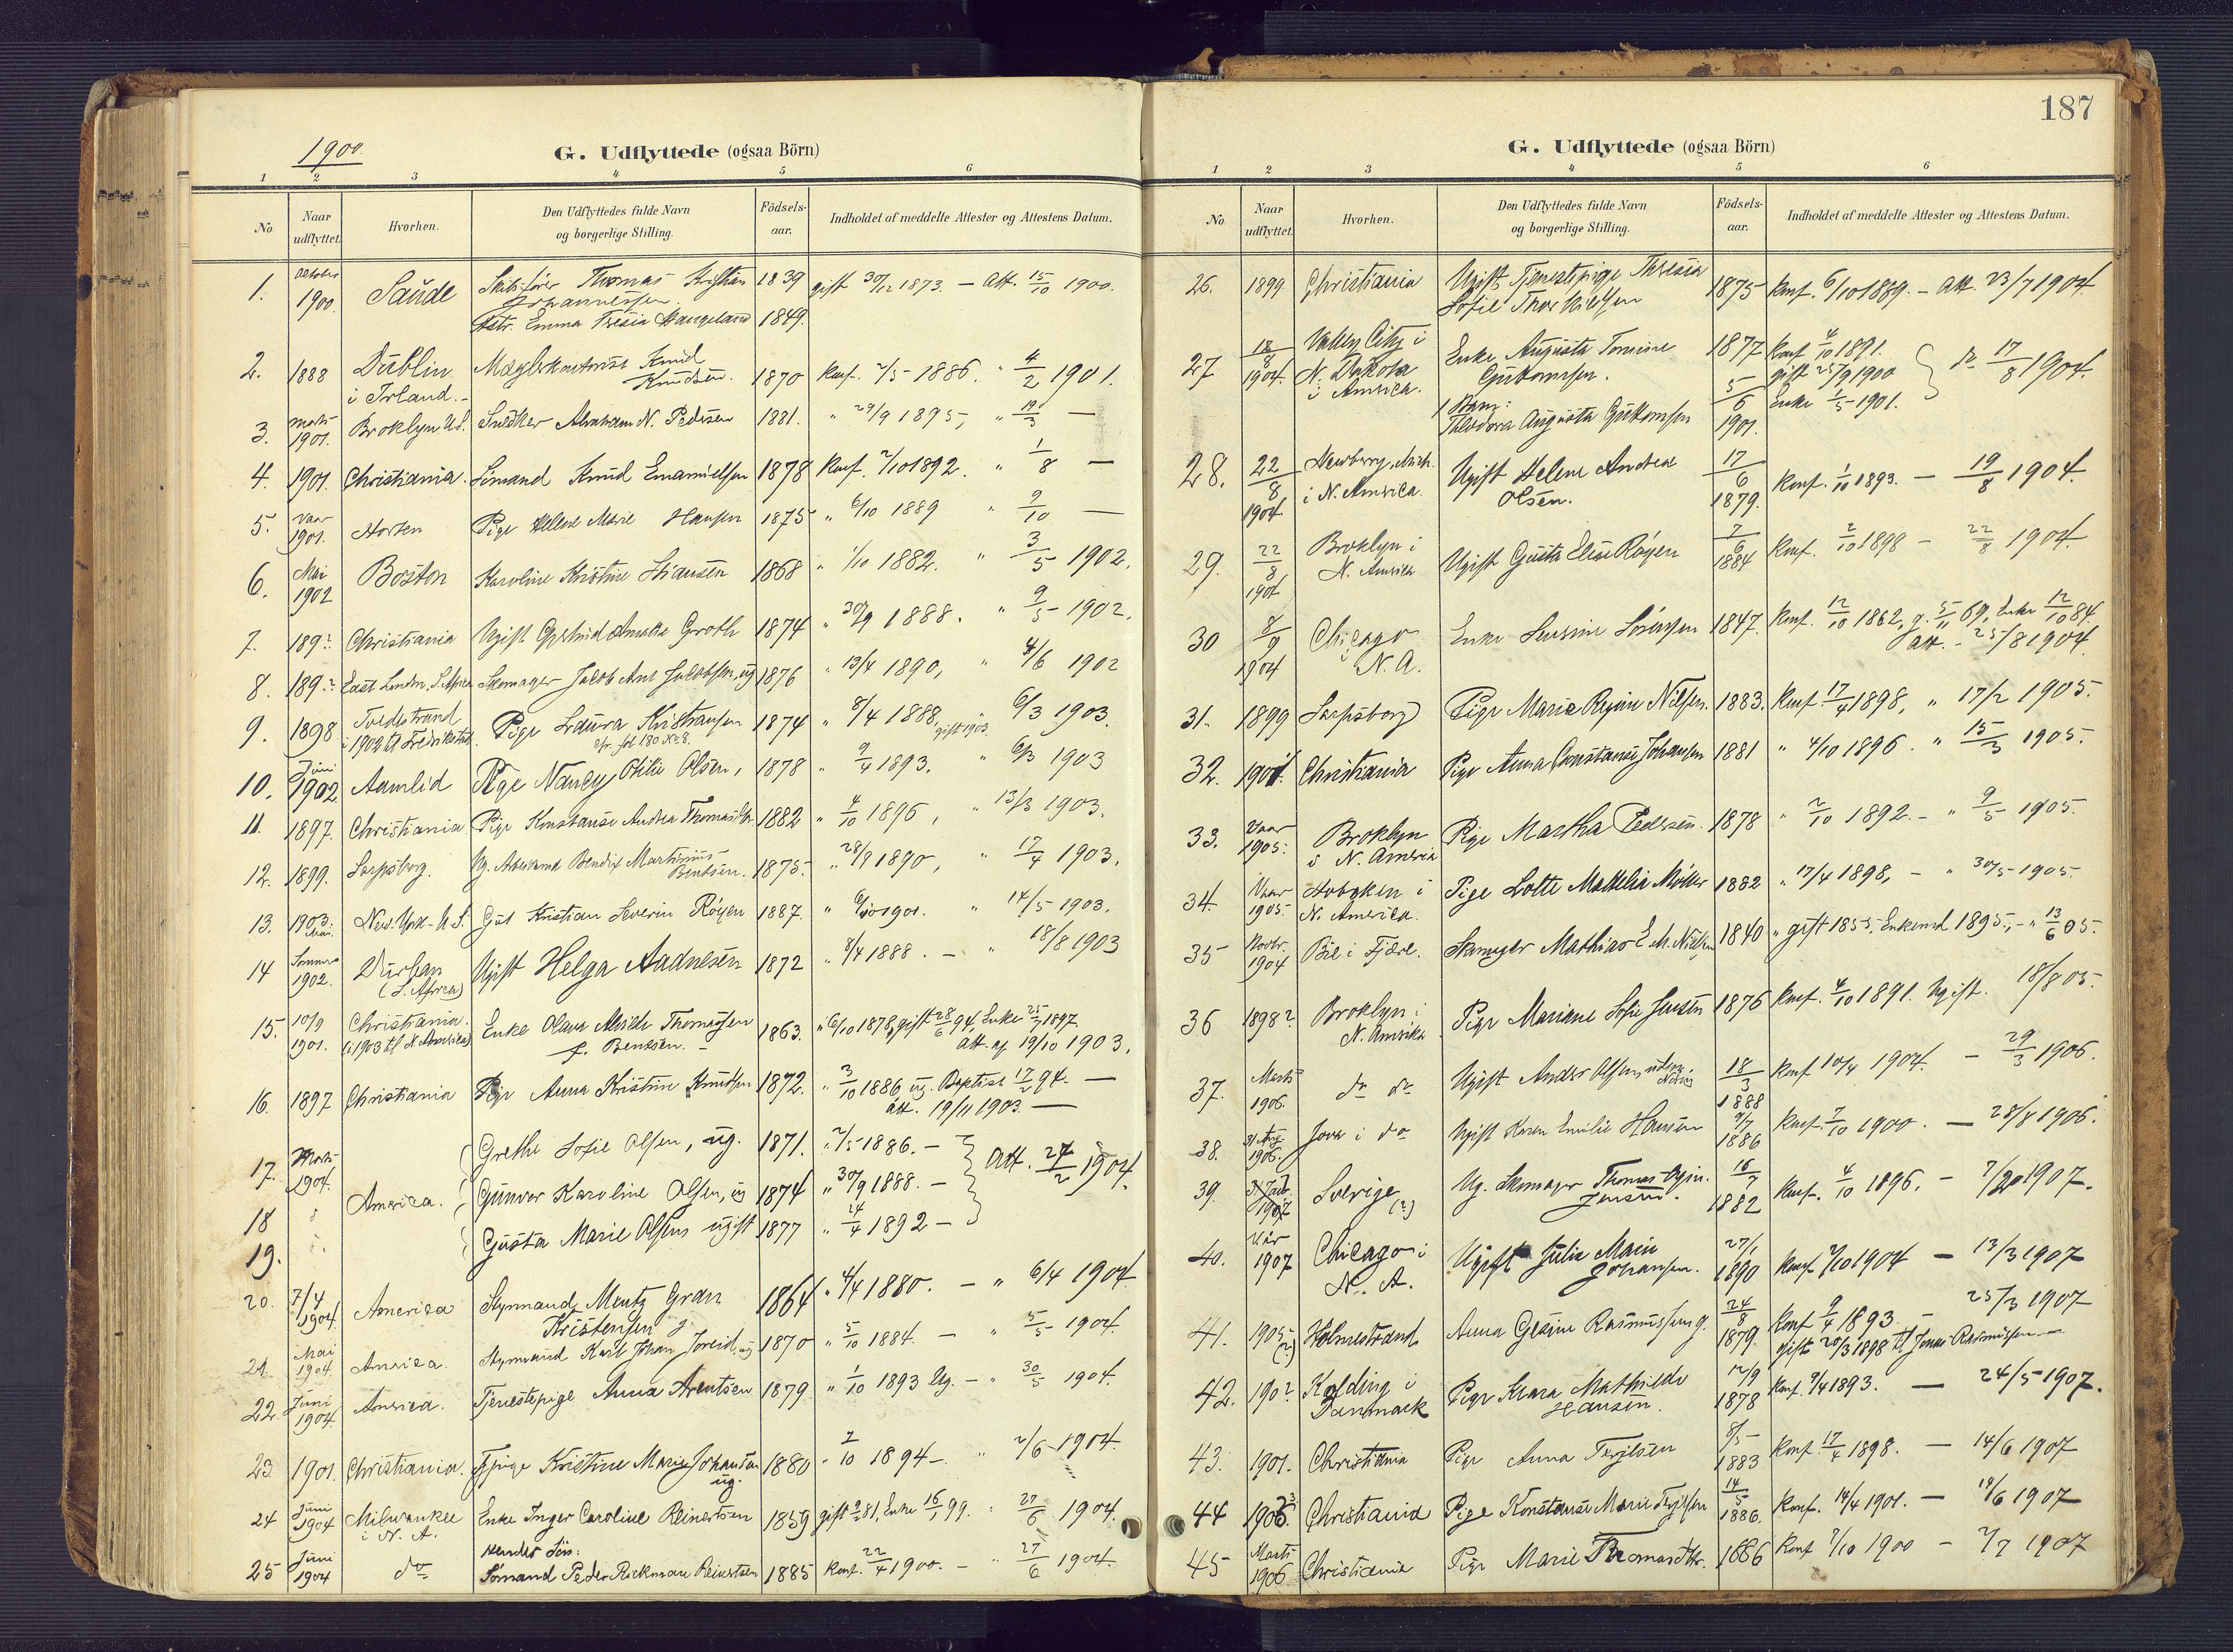 1900.
G. Udflyttede (ogsaa Börn)
1 2 3 4 5 6
No
Naar udflyttet.
Hvorhen.
Den Udflyttedes fulde Navn og borgerlige Stilling.
Födsels-aar.
Indholdet af meddelte Attester og Attestens Datum.
1. October 1900. Saude Thomas Kristian Johannessen 1839 gift 30/12 1873. — Att. 15/10 1900.
Emma Tresia Haugeland 1849.
2. 1888 Dublin i Irland. Mæglerkontorist Knud Knudsen. 1870 Konf. 2/5 1886. " 4/2 1901.
3. Marts 1901. Broklyn U.S. Snedker Abraham N. Pedersen 1881. " 29/9 1895, " 19/3 —
4. 1901. Christiania. Sömand Knud Emanuelsen 1878 Konf. 2/10 1892. " 1/8 —
5. Vaar 1901. Horten Pige Helene Marie Hansen 1875 " 6/10 1889 " 9/10 —
6. Mai 1902 Boston Karoline Kristine 1868 " 1/10 1882. " 3/5 1902.
7. 189? Christiania Ugift Gjertrud Amalie Groth 1874 " 30/9 1888. " 9/5 1902.
8. 189? East London, S. Africa Skomager Jacob Ant. Jakobsen, ug 1876 " 13/4 1890, " 4/6 1902
9. 1898 Tvedestrand i 1902 til Fredrikstad Pige Laura Kristiansen 1874 " 8/4 1888, " 6/3 1903.
cfr. fol 180 No 8. gift 1903
10. Juni 1902 Aamlid Pige Nancy Otilie Olsen, 1878 " 9/4 1893. " 6/3 1903
11. 1897. Christiania Pige Konstanse Andrea Thomasdtr. 1882 " 4/10 1896, " 13/3 1903.
12. 1899. Sarpsborg. Ug. Bendix Martinius Bentsen. 1875. " 28/9 1890, " 17/4 1903.
13. 1903. Mai. New-York U.S. Gut Kristian Severin Röyen 1887. " 6/10 1901. " 14/5 1903.
14 Sommer 1902. Durban (S. Africa) Ugift Helga Aadnesen 1872 " 8/4 1888. — " 18/8 1903
15. 10/9 1901. Christiania. (i 1903 til N. America) Enke Olava Alvilde Thomassen f. Bentsen. — 1863. " 6/10 1878, gift 28/6 94, Enke 25/7 1897
Att. 19/10 1903.
16. 1897 Christiania Pige Anna Kristine Knudsen 1872. " 3/10 1886 ug. Baptist 17/2 94. —
att. 19/11 1903. —
17. Marts 1904. America. Grethe Sofie Olsen, ug. 1871. " 2/5 1886. — Att. 24/2 1904.
18 Gunvor Karoline Olsen, ug 1874 " 30/9 1888. —
19. Gusta Marie Olsen ugift 1877 " 24/4 1892 —
20. 7/4 1904. America Styrmand Mentz Gran Kristensen 1864 " 4/4 1880. — " 6/4 1904
21. Mai 1904. America. Styrmand Karl Johan 1870 " 5/10 1884. — " 5/5 1904.
22. Juni 1904. America. Tjenestepige Anna Arentsen 1879 " 1/10 1893 Ug. — " 30/5 1904.
23. 1901. Christiania. Tj.pige Kristine Marie Johansen ug. 1880 " 7/10 1894 — " 2/6 1904.
24 Juni 1904 Milwaukee i N. A. Enke Inger Caroline Reinertsen 1859 gift 9/2 81, Enke 16/1 99. " 27/6 1904.
25 Juni 1904 do Hendes Sön: Sömand Peder Rickman Reinertsen 1885 Konf. 22/4 1900. — " 27/6 1904.
187
G. Udflyttede (ogsaa Börn)
1 2 3 4 5 6
No
Naar udflyttet.
Hvorhen.
Den Udflyttedes fulde Navn og borgerlige Stilling.
Födsels-aar.
Indholdet af meddelte Attester og Attestens Datum.
26. 1899 Christiania Ugift Tjenestepige Thresia Sofie Thor Nielsen 1875 Konf. 6/10 1889. — Att. 23/7 1904.
27 18/8 1904. Valley City i N. Dakota i America. Enke Augusta Tomine Guttormsen. 1877 Konf 4/10 1891. gift 25/9 1900 Enke 1/5 1901. do 17/8 1904.
1 Barn: Theodora Augusta Guttormsen 5/6 1901.
28. 22/8 1904. Newberry, Mich. i N. America. Ugift Helene Andrea Olsen. 17/6 1879. Konf. 1/10 1893. — 19/8 1904.
29. 22/8 1904 Broklyn i N. America Ugift Gusta Elise Röyen 7/6 1884 Konf. 2/10 1898 — 22/8 1904.
30 8/9 1904 Chicago i N.A. Enke Severine Sörensen 1847. Konf. 12/10 1862, g. 5/11 69, Enke 12/10 84.
Att. — 25/8 1904.
31. 1899 Sarpsborg Pige Marie Regine Nilsen. 1883. Konf. 17/4 1898, " 17/2 1905.
32. 1901. Christiania Pige Anna Constanse Johansen 1881 " 4/10 1896. " 15/3 1905.
33. Vaar 1905. Broklyn i N. America Pige Martha Pedersen. 1878 " 2/10 1892. — " 9/5 1905.
34. Vaar 1905. Hoboken i N. America. Pige Lotte Mathilia Möller 1882 " 17/4 1898, — " 30/5 1905.
35 Novbr. 1904 Bie i Fjære. Skomager Mathias E. M. Nielsen 1840 " gift 1855. Enkemd 1895, — " 13/6 05.
36 1898? Broklyn i N. Amerika Pige Mariane Sofie Jensen 1876 Konf. 4/10 1891. Ugift. 18/8 05.
37. Marts 1906. do do Ugift Anders Olsen 18/3 1888 Konf 10/4 1904. — 29/3 1906.
38. 31 Aug. 1906. Jova i do Ugift Karen Emilie Hansen 9/7 1886 Konf. 7/10 1900. — 28/8 1906.
39. 1907 Sverige (?) Ug. Skomager Thomas Jensen. 16/7 1882 Konf. 4/10 1896. — 7/2 1907.
40. Vaar 1907 Chicago i N. A. Ugift Julie Marie Johansen. 27/1 1890 Konf 2/10 1904 — 13/3 1907
41. 1905 (?) Holmestrand Anna Gesine Rasmussen g. 24/8 1879. Konf 9/4 1893. — 25/3 1907
gift 20/3 1898 til Jonas Rasmussen —
42. 190? Kolding i Danmark Pige Klara Mathilde Hansen. 12/9 1878 Konf. 9/4 1893. — 24/5 1907.
43. 1901. Christiania Pige Anna Terjesen 8/5 1883 Konf 17/4 1898. — 14/6 1907
44 1903 Christiania Pige Konstanse Marie Terjesen 14/5 1886. Konf. 14/4 1901. — 14/6 1907
45 Marts 1906 Christiania Pige Marie Thomasdtr. 1886 Konf 7/10 1900 — 2/7 1907